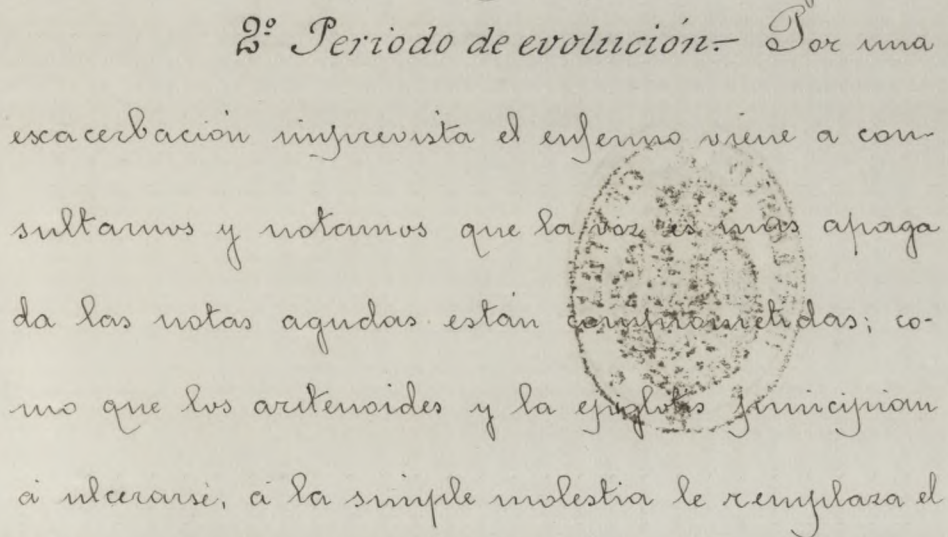 2º Periodo de evolución.- Por una
exacerbación imprevista el enfermo viene a con-
sultarnos y notamos que la voz es mas apaga
da las notas agudas están comprometidas; co-
mo que los aritenoides y la epiglotis principian
á ulcerarse, á la simple molestia le remplaza el